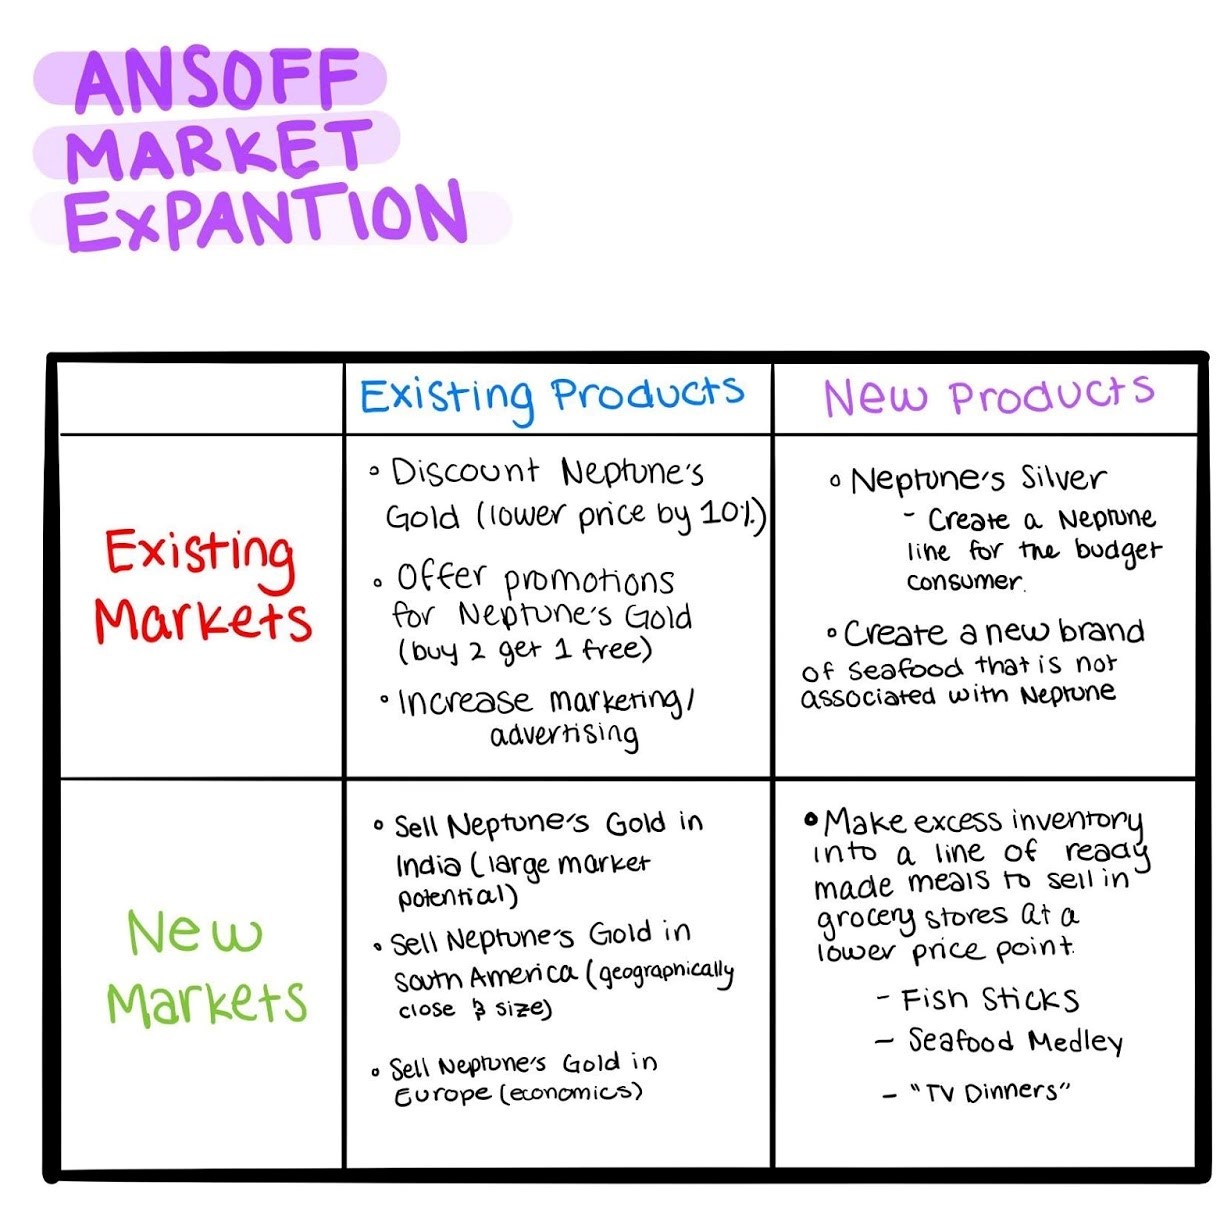 ANSOFF
MARKET
EXPANTION
Existing Products
New Products
Existing
Markets
◦ Discount Neptune's
Gold (lower price by 10%)
◦ Offer promotions
for Neptune's Gold
(buy 2 get 1 free)
◦ Increase marketing/
advertising
◦ Neptune's Silver
- Create a Neptune
line for the budget
consumer.
◦ Create a new brand
of seafood that is not
associated with Neptune
New
Markets
◦ Sell Neptune's Gold in
India (large market
potential)
◦ Sell Neptune's Gold in
South America (geographically
close & size)
◦ Sell Neptune's Gold in
Europe (economics)
• Make excess inventory
into a line of ready
made meals to sell in
grocery stores at a
lower price point.
- Fish Sticks
- Seafood Medley
- "TV Dinners"